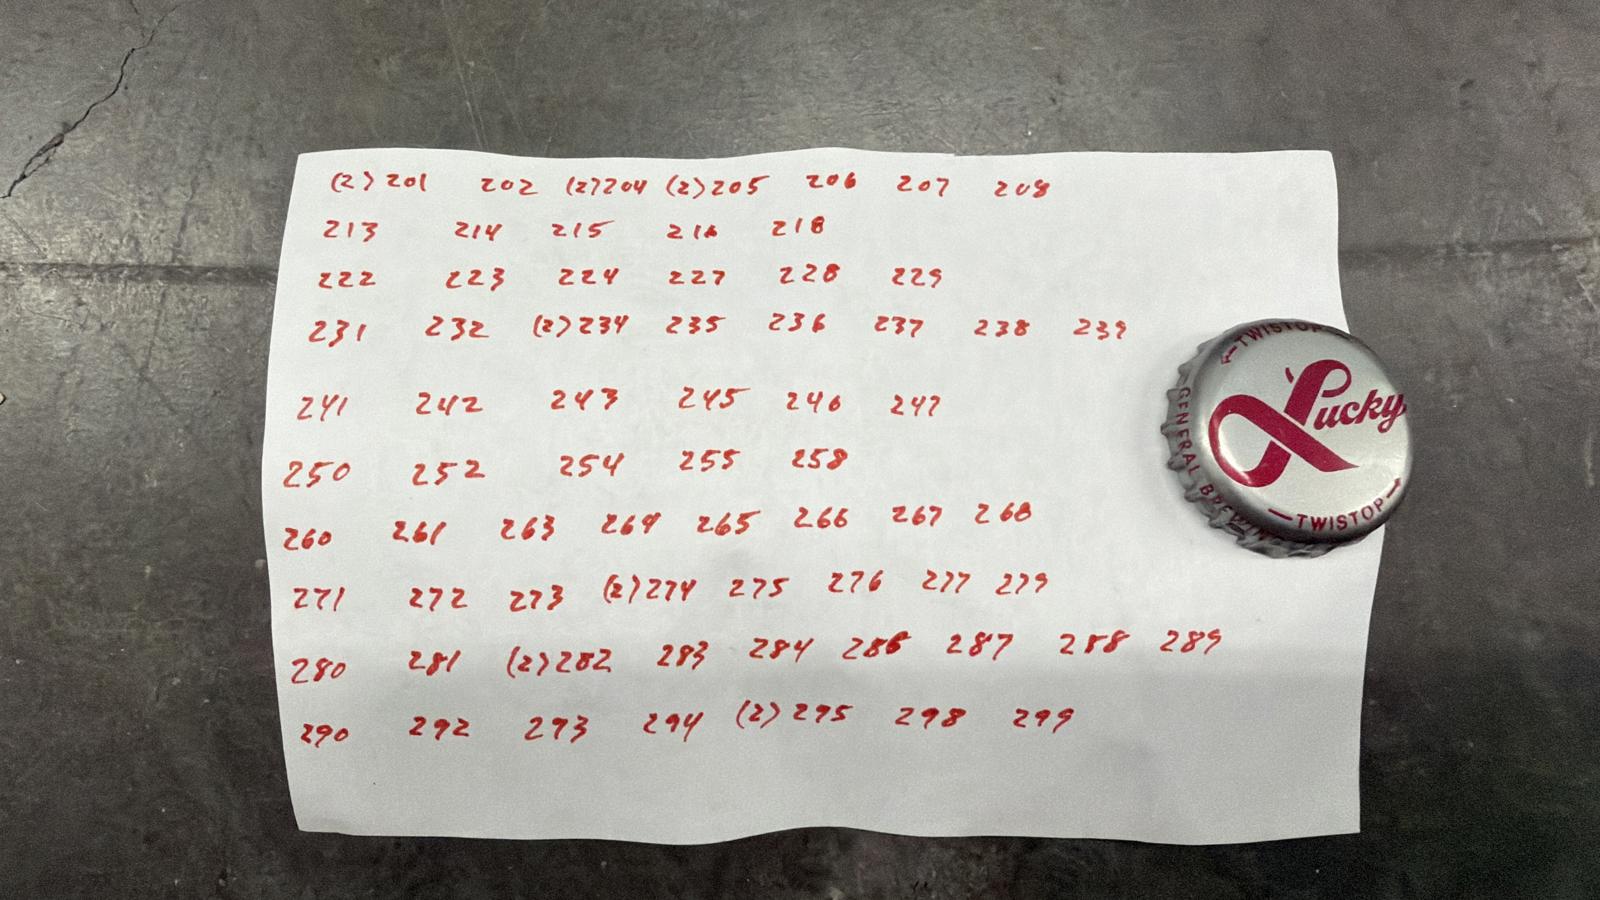 (2) 201 202 (2) 204 (2) 205 206 207 208
213 214 215 216 218
222 223 224 227 228 229
231 232 (2) 234 235 236 237 238 239
241 242 243 245 246 247
250 252 254 255 258
260 261 263 264 265 266 267 268
271 272 273 (2) 274 275 276 277 279
280 281 (2) 282 283 284 286 287 288 289
290 292 293 294 (2) 295 298 299
TWISTOP
Lucky
GENERAL BREWING
TWISTOP